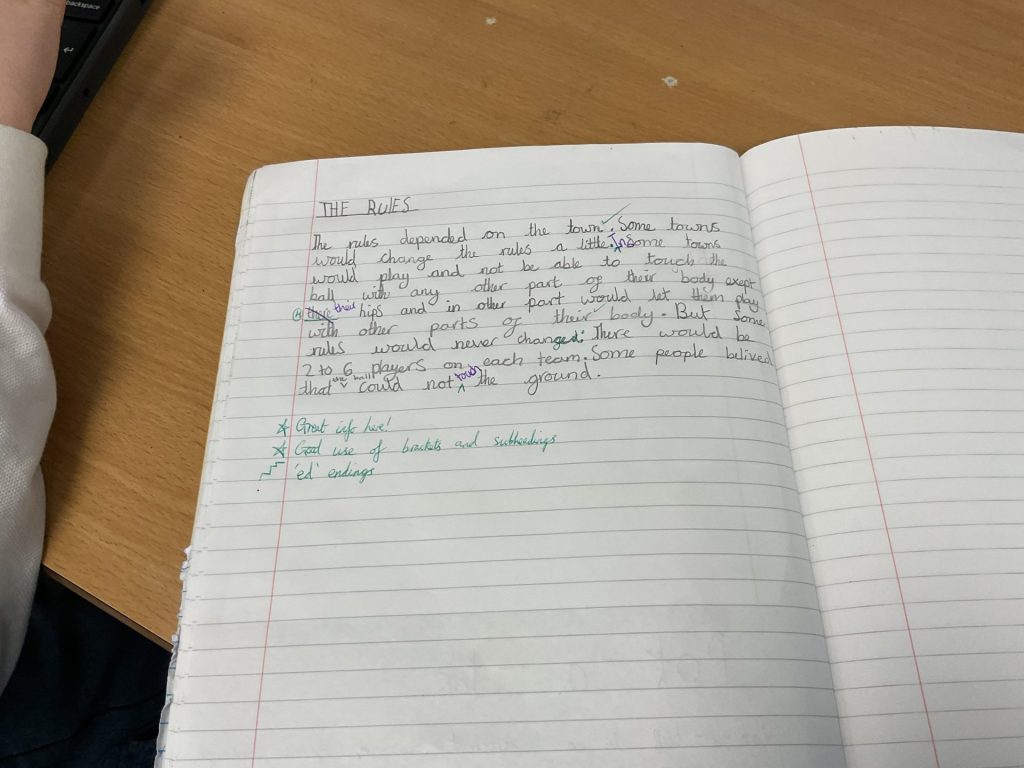 backspace
THE RULES
The rules depended on the town. Some towns
would change the rules a little. In Some towns
would play and not be able to touch the
ball with any other part of their body exept
their hips and in other part would let them play
with other parts of their body. But some
rules would never changed: There would be
2 to 6 players on each team. Some people belived
that the ball could not touch the ground.
Great info here!
Good use of brackets and subheadings
'ed' endings